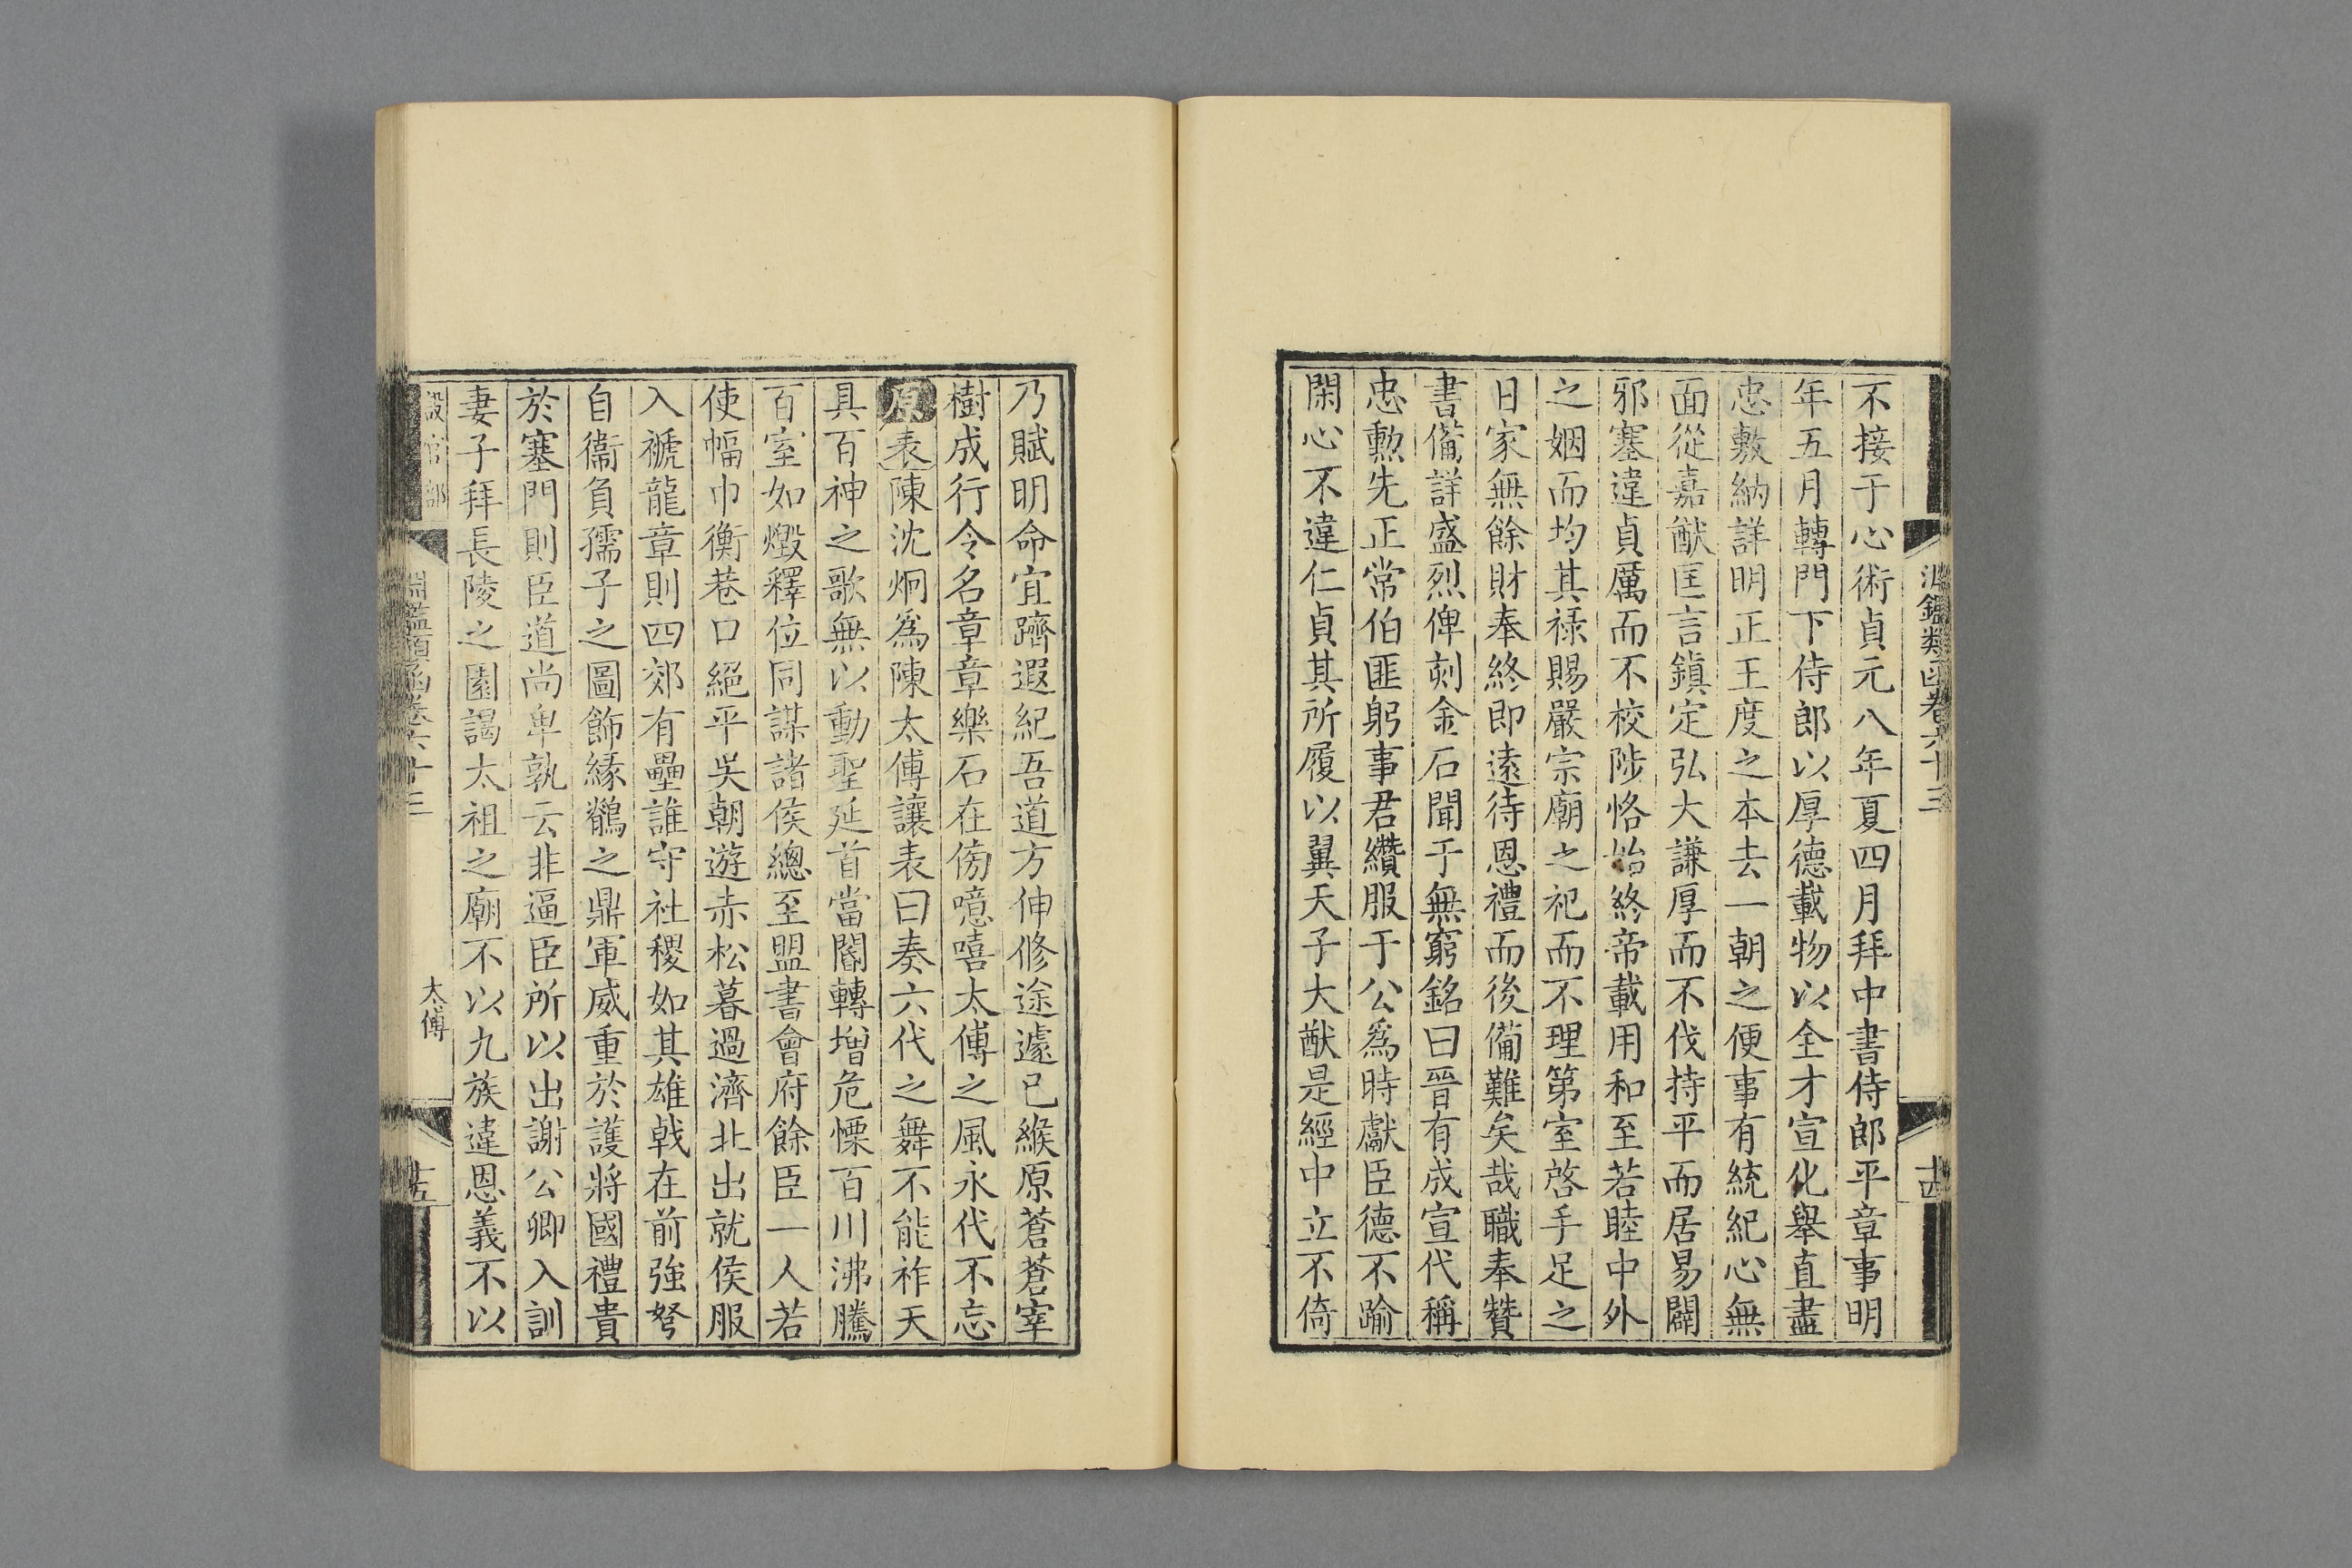 淵鑑類函卷六十三
十四
不接于心術貞元八年夏四月拜中書侍郎平章事明
年五月轉門下侍郎以厚德載物以全才宣化舉直盡
忠敷納詳明正王度之本去一朝之便事有統紀心無
面從嘉猷匡言鎮定弘大謙厚而不伐持平而居易闢
邪塞違貞厲而不校陟恪始終帝載用和至若睦中外
之姻而均其祿賜嚴宗廟之祀而不理第室啓手足之
日家無餘財奉終即遠待恩禮而後備難矣哉職奉贊
書備詳盛烈俾刻金石聞于無窮銘曰晉有成宣代稱
忠勲先正常伯匪躬事君纘服于公爲時獻臣德不踰
閑心不違仁貞其所履以翼天子大猷是經中立不倚
乃賦明命宜躋遐紀吾道方伸修途遽已緱原蒼蒼宰
樹成行令名章章樂石在傍噫嘻太傅之風永代不忘
原表陳沈炯爲陳太傅讓表曰奏六代之舞不能祚天
具百神之歌無以動聖延首當闈轉增危慄百川沸騰
百室如燬釋位同謀諸侯總至盟書會府餘臣一人若
使幅巾衡巷口絕平吳朝遊赤松暮過濟北出就侯服
入褫龍章則四郊有壘誰守社稷如其雄戟在前強弩
自衞負孺子之圖飾緣鶺之鼎軍威重於護將國禮貴
於塞門則臣道尚卑孰云非逼臣所以出謝公卿入訓
妻子拜長陵之園謁太祖之廟不以九族違恩義不以
設官部
淵鑑類函卷六十三
太傅
十五